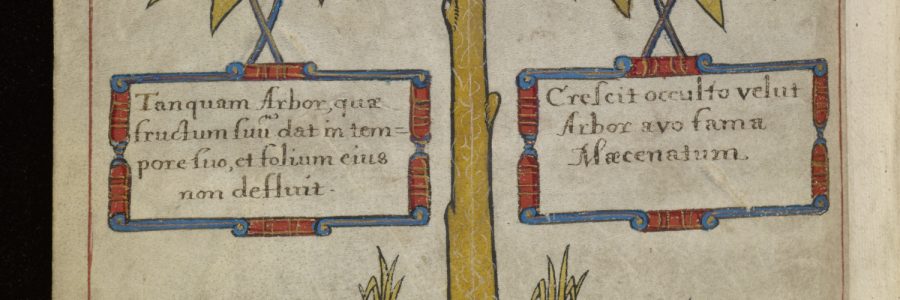 Tanquam Arbor, quæ
fructum suũ dat in tem=
pore suo, et folium eius
non defluit.
Crescit occulto velut
Arbor avo fama
Mæcenatum